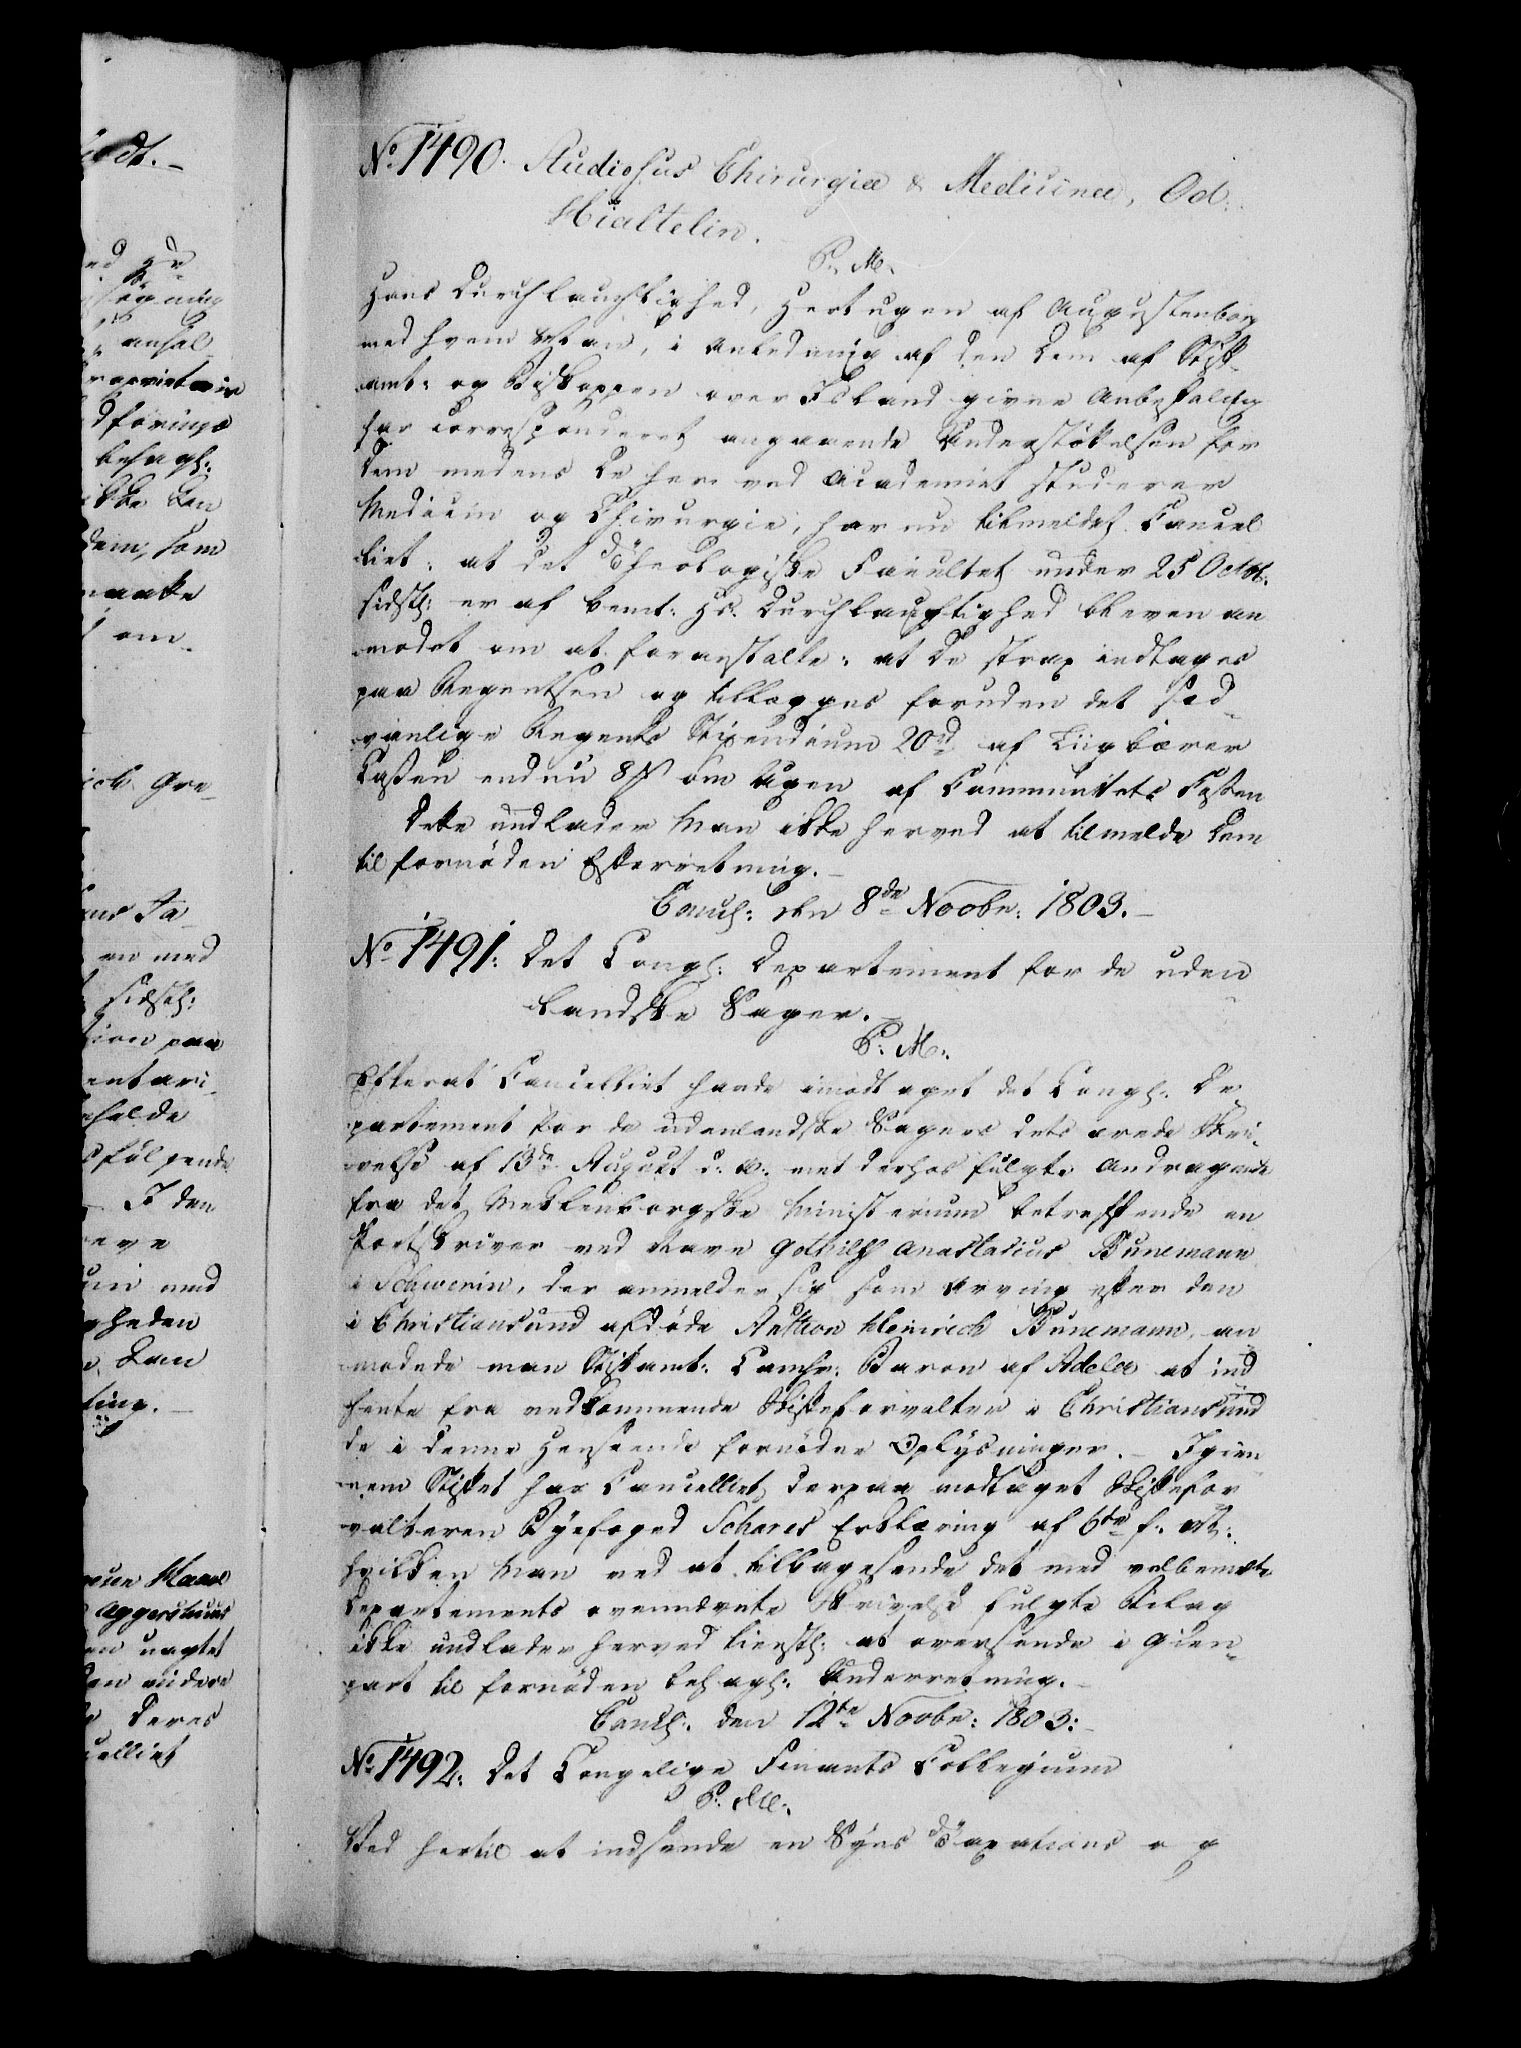 No 1490. Studiosus Chirurgiæ & Medicinæ, Od:
Hialtelin.
P. M.
Hans Durchlauchtighed, Hertugen af Augustenborg
med hvem Man, i Anledning af den Dem af Stift-
amt: og Biskoppen over Island givne Anbefaling
har correspondoret angaaende Understøttelsen for
Dem medens De her ved Academiet studerer
Medicin og Chirurgie, har nu tilmeldet Cancel
liet: at det Theologiske Facultet under 25 Octbr:
sidstl: er af bemt: Hs. Durchlauchtighed bleven an
modet om at foranstalte: at De strax indtages
paa Regentsen og tillægges foruden det sæd-
vanlige Regents Stipendium 20 rd af Liigbærer
Cassen endnu 8 ß om Ugen af Communitets Cassen
Dette undlader Man ikke herved at tilmelde Dem
til fornøden Efterretning.
Cancl: den 8de Novbr: 1803.
No 1491: Det Kongl: Departement for de uden
landske Sager.
P: M:
Efterat Cancelliet havde imodtaget det Kongl: De
partement for de udenlandske Sagers dets ærede Skri-
velse af 13de August d: A: met derhos fulgte Andragende
fra det Meklenborgske Ministerium betreffende en
Portskriver ved Navn Gothilf Anastasius Bunemann
i Schwerin, der anmelder sig som Arving efter den
i Christiansund afdøde Anthon Heinrich Bunemann, an
modede man Stiftamt: Camhr: Baron af Adeler at ind
hente fra vedkommende Skifteforvalter i Christiansund
de i denne Henseende fornødne Oplysninger. - Igien
nem Stiftet har Cancelliet derpaa modtaget Skiftefor
valteren Byefoged Schares Erklæring af 6te f: M:
hvilken Man ved at tilbagesende det med velbemelte
Departements ovennævnte Skrivelse fulgte Bilag
ikke undlader herved tienstl: at oversende i Gien-
part til fornøden behagl: Underretning.
Cancl: den 12te Novbr: 1803:
No 1492: Det Kongelige Finants Collegium
P: M:
Ved hertil at indsende en Syns Taxations og